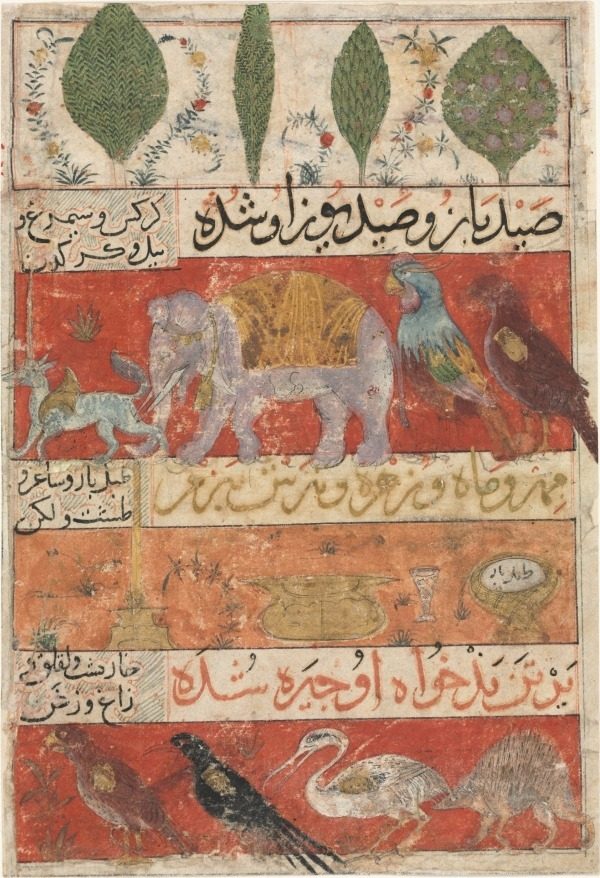 صید باز و صید یوز او شده
کرکس و سیمرغ و
پیل و کرکدن
مهر و ماه و زهره و
طبل باز و ساغر و
طشت و لکن
طبل باز
بر تن بذخواه او چیره شده
خارپشت و لقلق و
زاغ و زغن